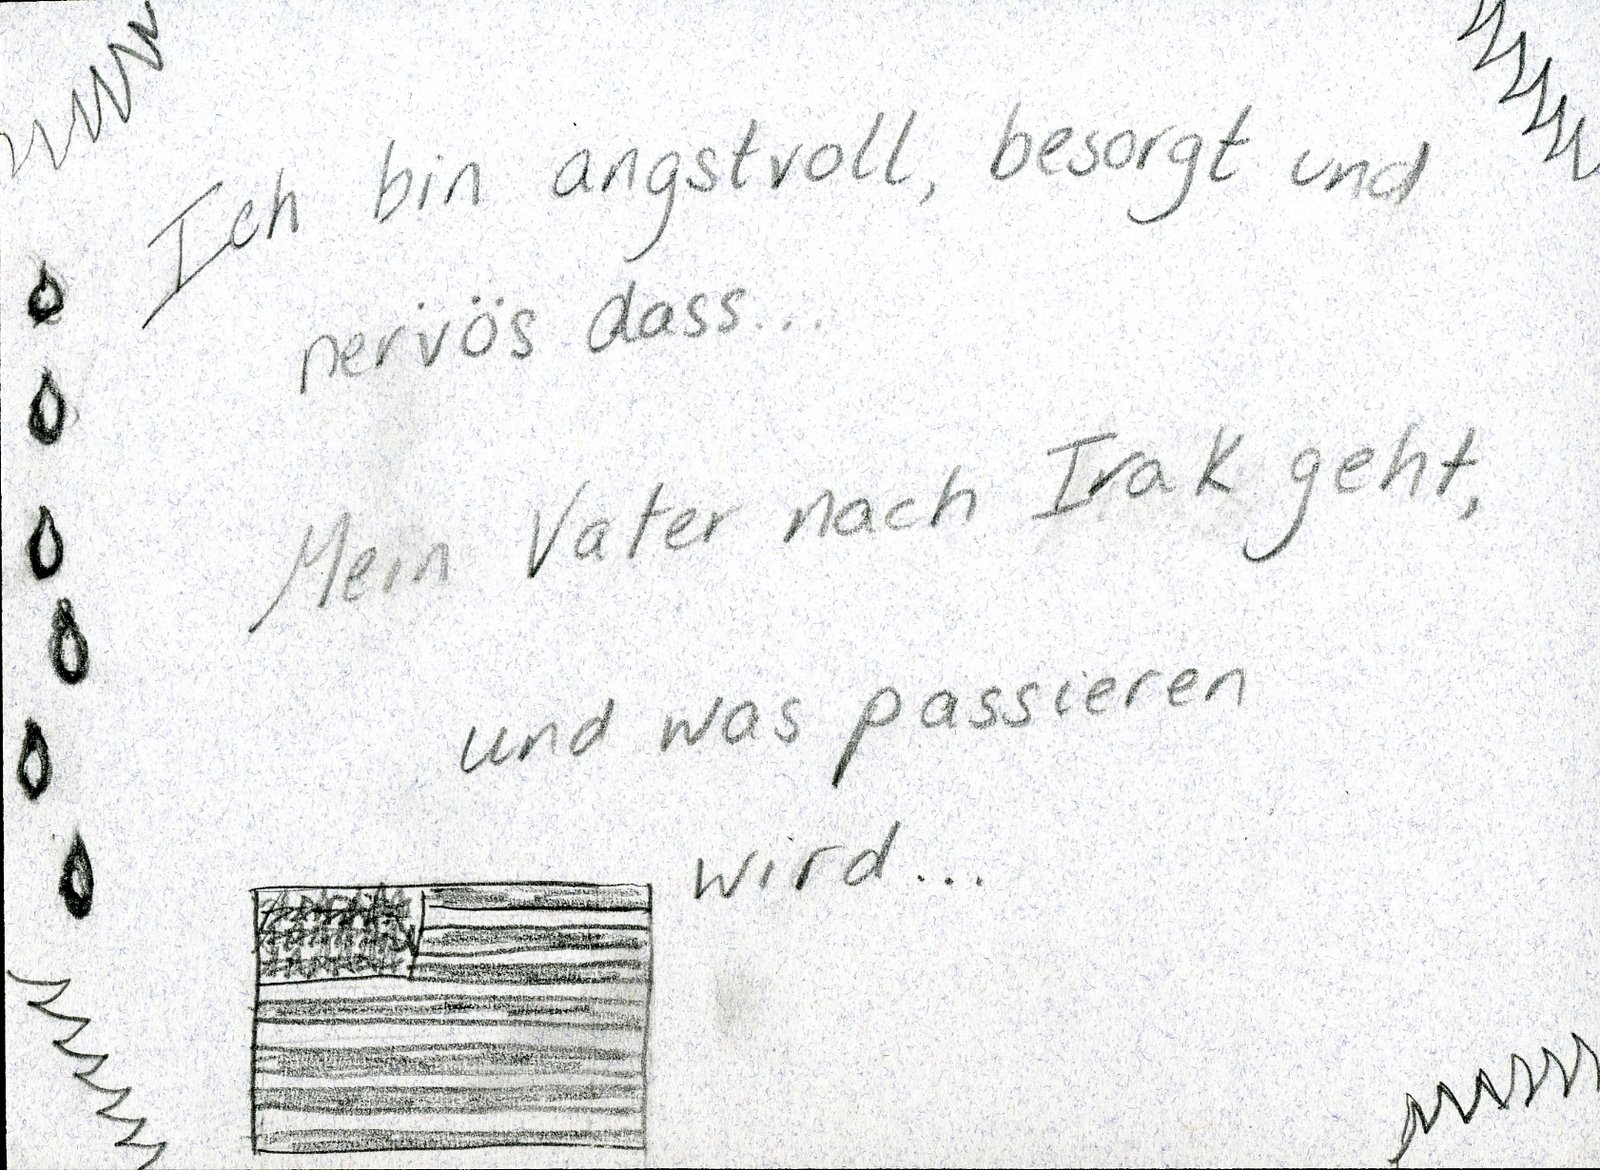 Ich bin angstvoll, besorgt und
nervös dass...
Mein Vater nach Irak geht,
und was passieren
wird...